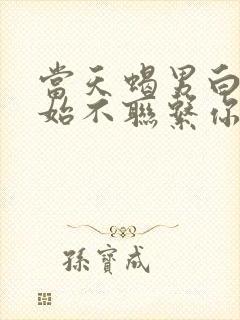 當天蝎男白
始不聯繫你
孫寶成